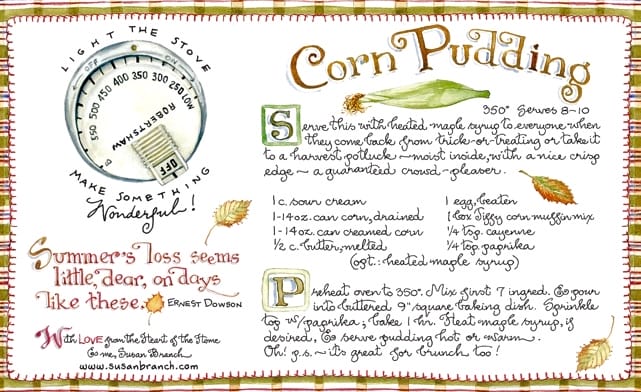 LIGHT THE STOVE
OFF ON
LOW 250 300 350 400 450 500 550 B
ROBERTSHAW
OFF
MAKE SOMETHING
Wonderful!
Summer's loss seems
little, dear, on days
like these.
ERNEST DOWSON
With LOVE from the Heart of the Home
& me, Susan Branch
www.susanbranch.com
Corn Pudding
350° Serves 8-10
Serve this with heated maple syrup to everyone when
they come back from trick-or-treating or take it
to a harvest potluck ~ moist inside, with a nice crisp
edge ~ a guaranteed crowd-pleaser.
1 c. sour cream
1-14 oz. can corn, drained
1-14 oz. can creamed corn
1/2 c. butter, melted
1 egg, beaten
1 box Jiffy corn muffin mix
1/4 tsp. cayenne
1/4 tsp. paprika
(opt.: heated maple syrup)
Preheat oven to 350°. Mix first 7 ingred. & pour
into buttered 9" square baking dish. Sprinkle
top w/paprika, bake 1 hr. Heat maple syrup, if
desired, & serve pudding hot or warm.
Oh! p.s. ~ it's great for brunch too!